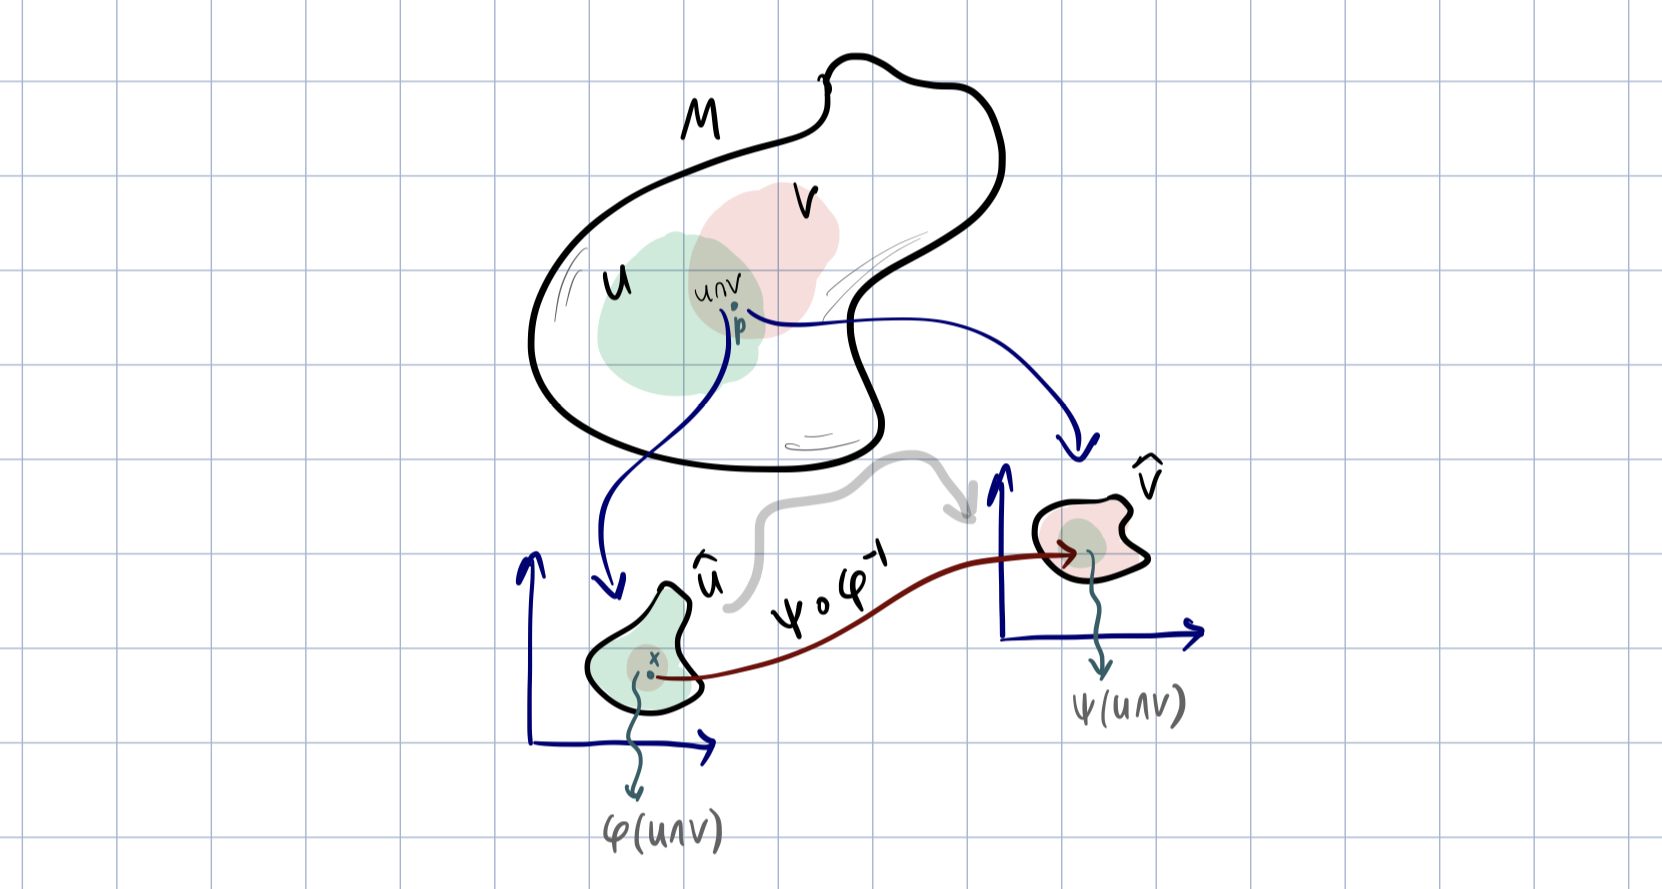 M
V
U
U∩V
p
V̂
Û
ψ∘φ⁻¹
x
ψ(U∩V)
φ(U∩V)